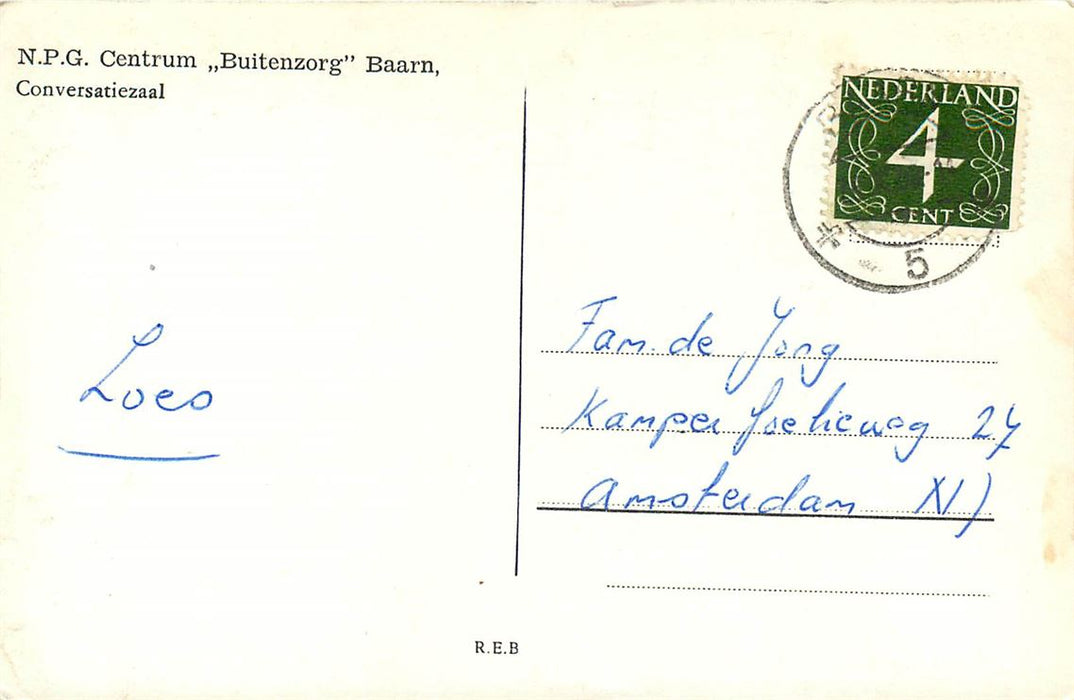 N.P.G. Centrum „Buitenzorg” Baarn,
Conversatiezaal
NEDERLAND
4
CENT
5
Loes
Fam. de Jong
Kamperfoelieweg 27
Amsterdam N)
R.E.B